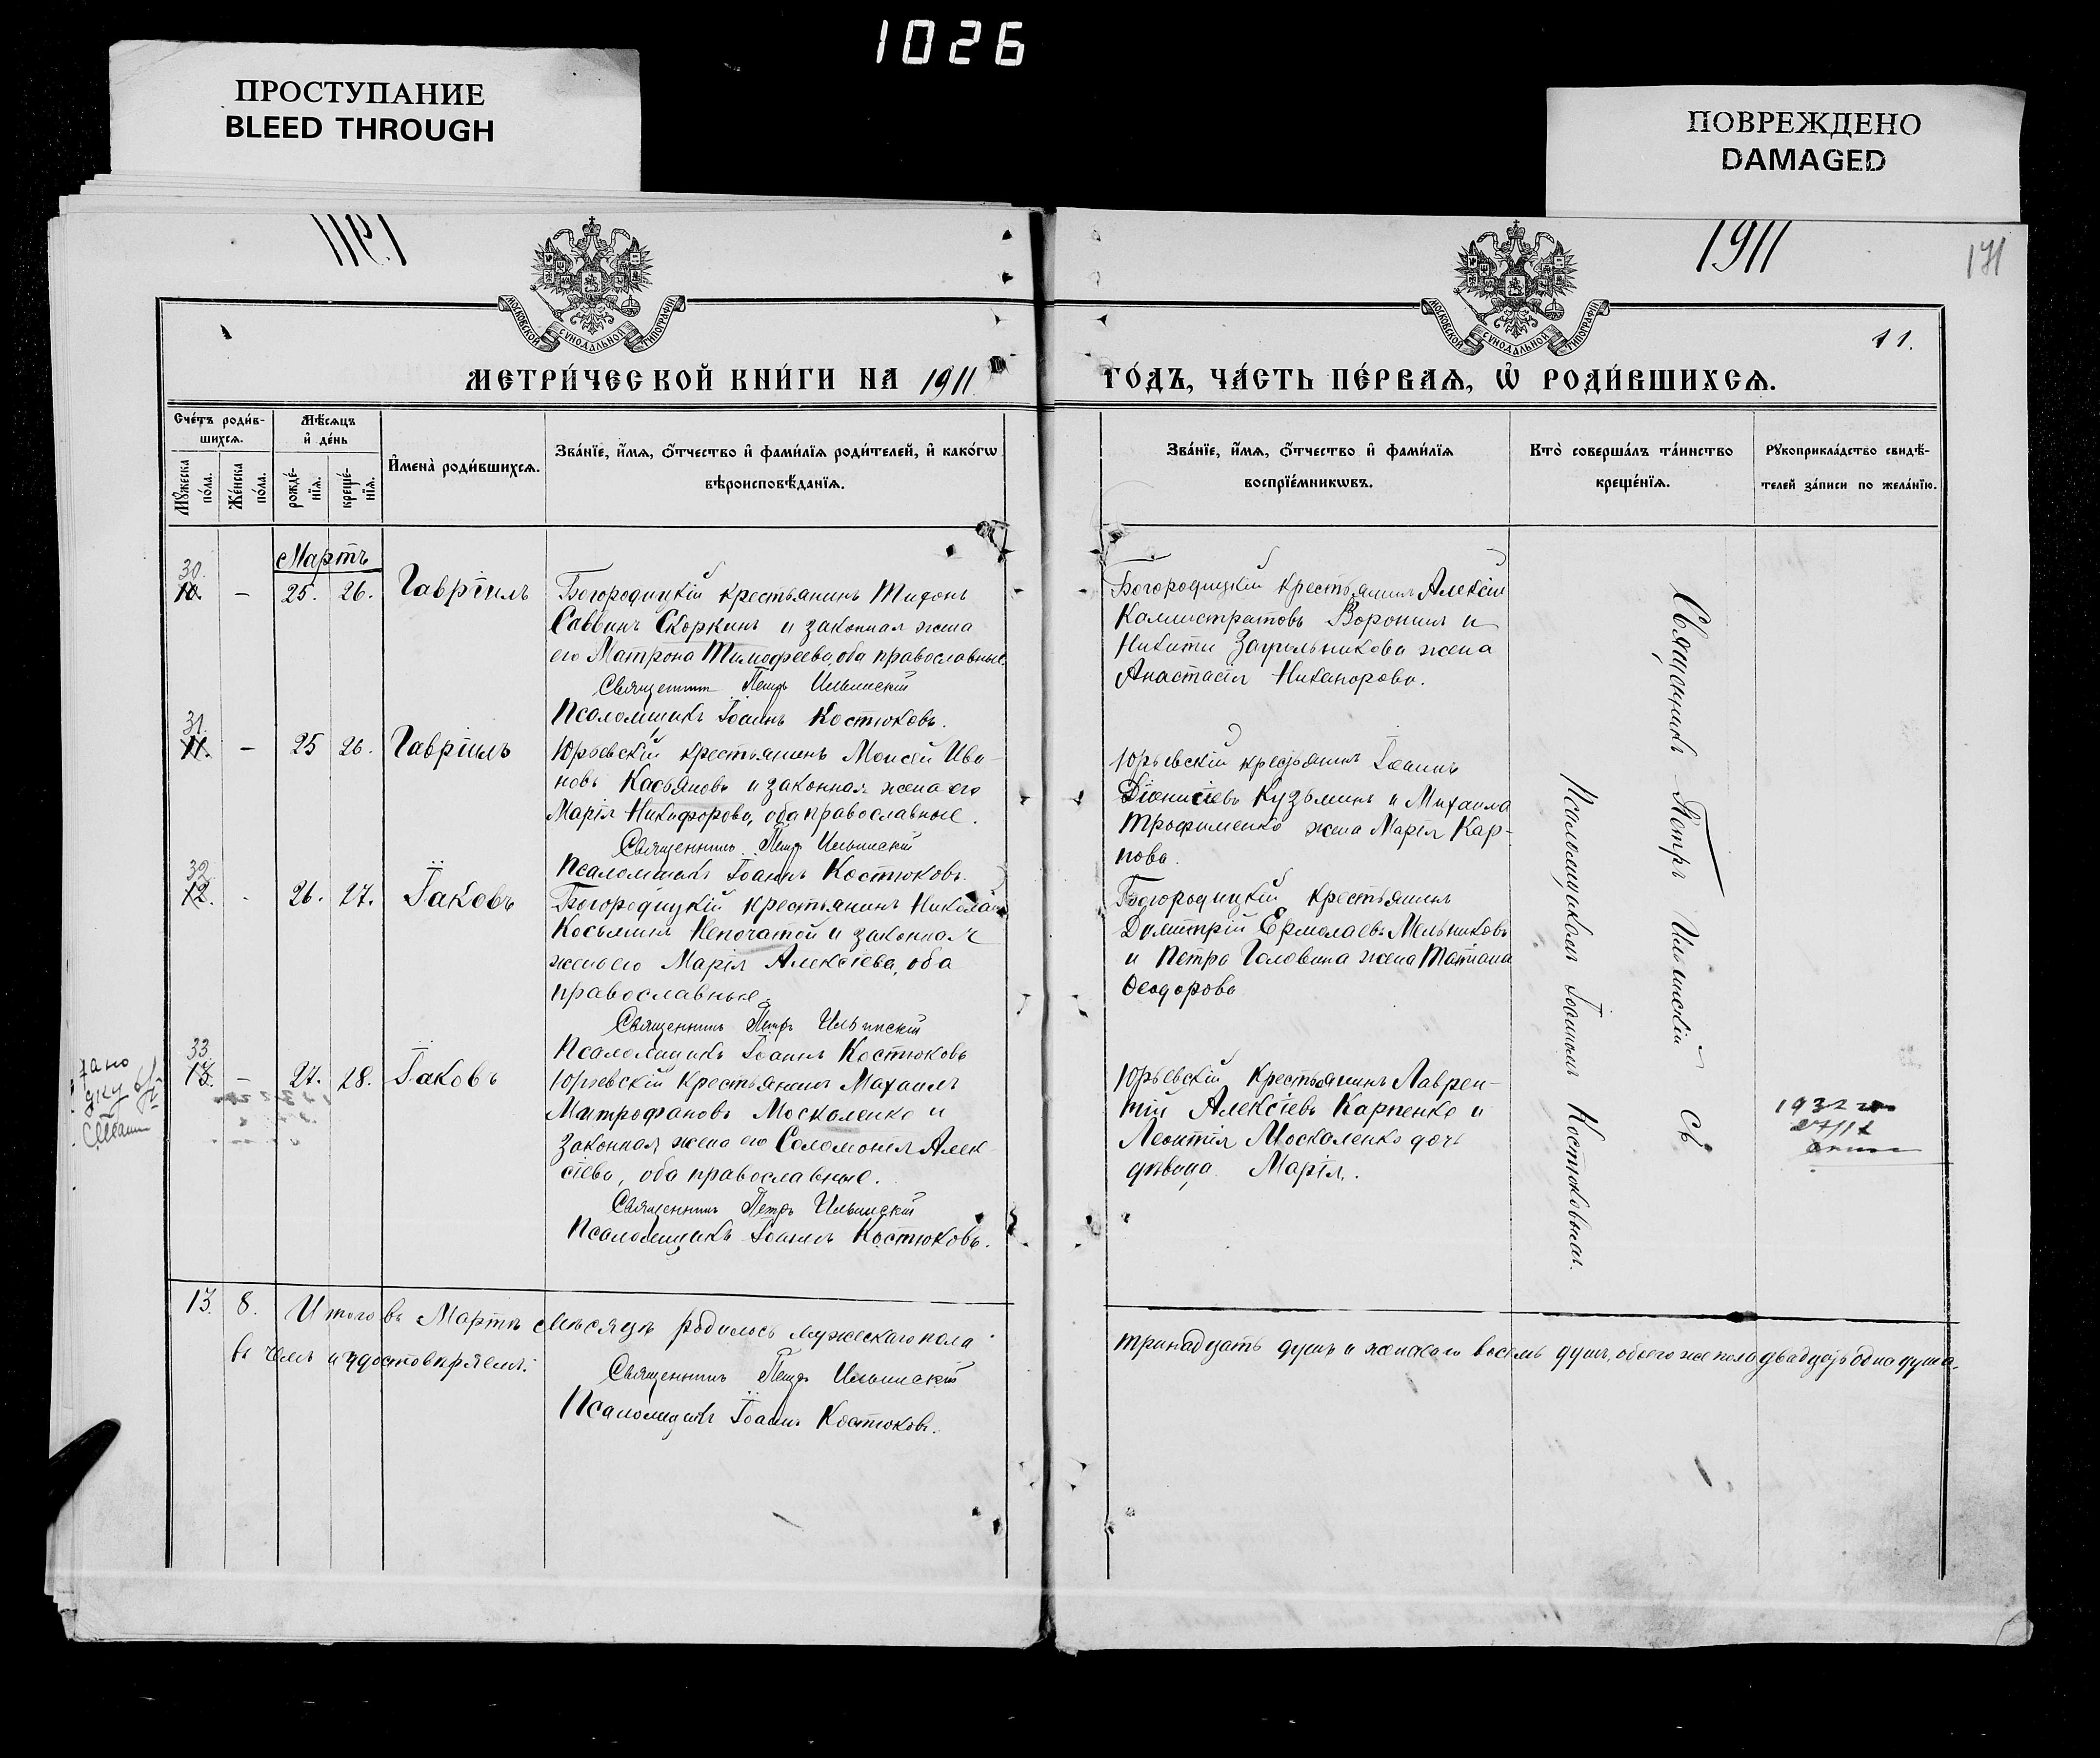 1026
ПРОСТУПАНИЕ
BLEED THROUGH
ПОВРЕЖДЕНО
DAMAGED
1911
171
МОСКОВСКОЙ СѴНОДАЛЬНОЙ ТИПОГРАФІИ
МОСКОВСКОЙ СѴНОДАЛЬНОЙ ТИПОГРАФІИ
11.
МЕТРИ́ЧЕСКОЙ КНИ́ГИ НА 1911
ГО́ДЪ, ЧА́СТЬ ПЕ́РВАѦ, Ѡ РОДИ́ВШИХСѦ.
Сче́тъ роди́в-
шихсѧ.
Мѣ́сѧцъ
и҆ де́нь
Мꙋ́жеска
по́ла.
Же́нска
по́ла.
рожде́-
нїѧ.
креще́-
нїѧ.
И҆мена̀ роди́вшихсѧ.
Зва́нїе, и҆́мѧ, ѻ҆́тчество и҆ фами́лїѧ роди́телей, и҆ како́гѡ
вѣроисповѣ́данїѧ.
Зва́нїе, и҆́мѧ, ѻ҆́тчество и҆ фами́лїѧ
воспрїе́мникѡвъ.
Кто̀ соверша́лъ та́инство
креще́нїѧ.
Рꙋкоприкла́дство свидѣ́-
телей за́писи по жела́нїю.
Мартъ
30.
10. - 25. 26. Гавріилъ
Богородицкій крестьянинъ Тифонъ
Саввинъ Скоркинъ и законная жена
его Матрона Тимофеева, оба православные
Священникъ Петръ Ильинскій
Псаломщикъ Іоаннъ Костюковъ.
Богородицкій крестьянинъ Алексій
Каллистратовъ Воронинъ и
Никиты жена
Анастасія Никанорова.
31.
11. - 25 26. Гавріилъ
Юрьевскій крестьянинъ Моисей Ива-
новъ Касьяновъ и законная жена его
Марія Никифорова, оба православные.
Священникъ Петръ Ильинскій
Псаломщикъ Іоаннъ Костюковъ.
Юрьевскій крестьянинъ Іоаннъ
Діонисіевъ Кузьминъ и Михаила
Трофименко жена Марія Кар-
пова.
32.
12. - 26. 27. Іаковъ
Богородицкій крестьянинъ Николай
Косьминъ Непочатой и законная
жена его Марія Алексіева, оба
православные.
Священникъ Петръ Ильинскій
Псаломщикъ Іоаннъ Костюковъ
Богородицкій крестьянинъ
Димитрій Ермолаевъ Мельниковъ
и Петра Головина жена Татіана
Ѳеодорова
33.
13. - 27. 28. Іаковъ
Юрьевскій крестьянинъ Михаилъ
Митрофановъ Москаленко и
законная жена его Соломонія Алек-
сіева, оба православные.
Священникъ Петръ Ильинскій
Псаломщикъ Іоаннъ Костюковъ.
Юрьевскій крестьянинъ Лаврен-
тій Алексіевъ Карпенко и
Леонтія Москаленко дочь
дѣвица Марія.
Священникъ Петръ Ильинскій съ
Псаломщикомъ Іоанномъ Костюковымъ.
1932
27/12
13. 8. Итого въ Мартѣ мѣсяцѣ родилось мужескаго пола
тринадцать душъ и женскаго восемь душъ, обоего же пола двадцать одна душа.
въ чемъ и удостовѣряемъ:
Священникъ Петръ Ильинскій
Псаломщикъ Іоаннъ Костюковъ.